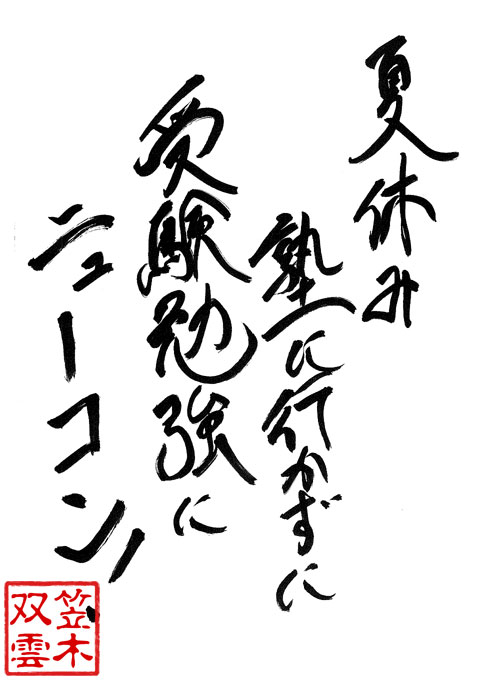 夏休み
塾に行かずに
受験勉強に
ニューコン!
笠木
双雲